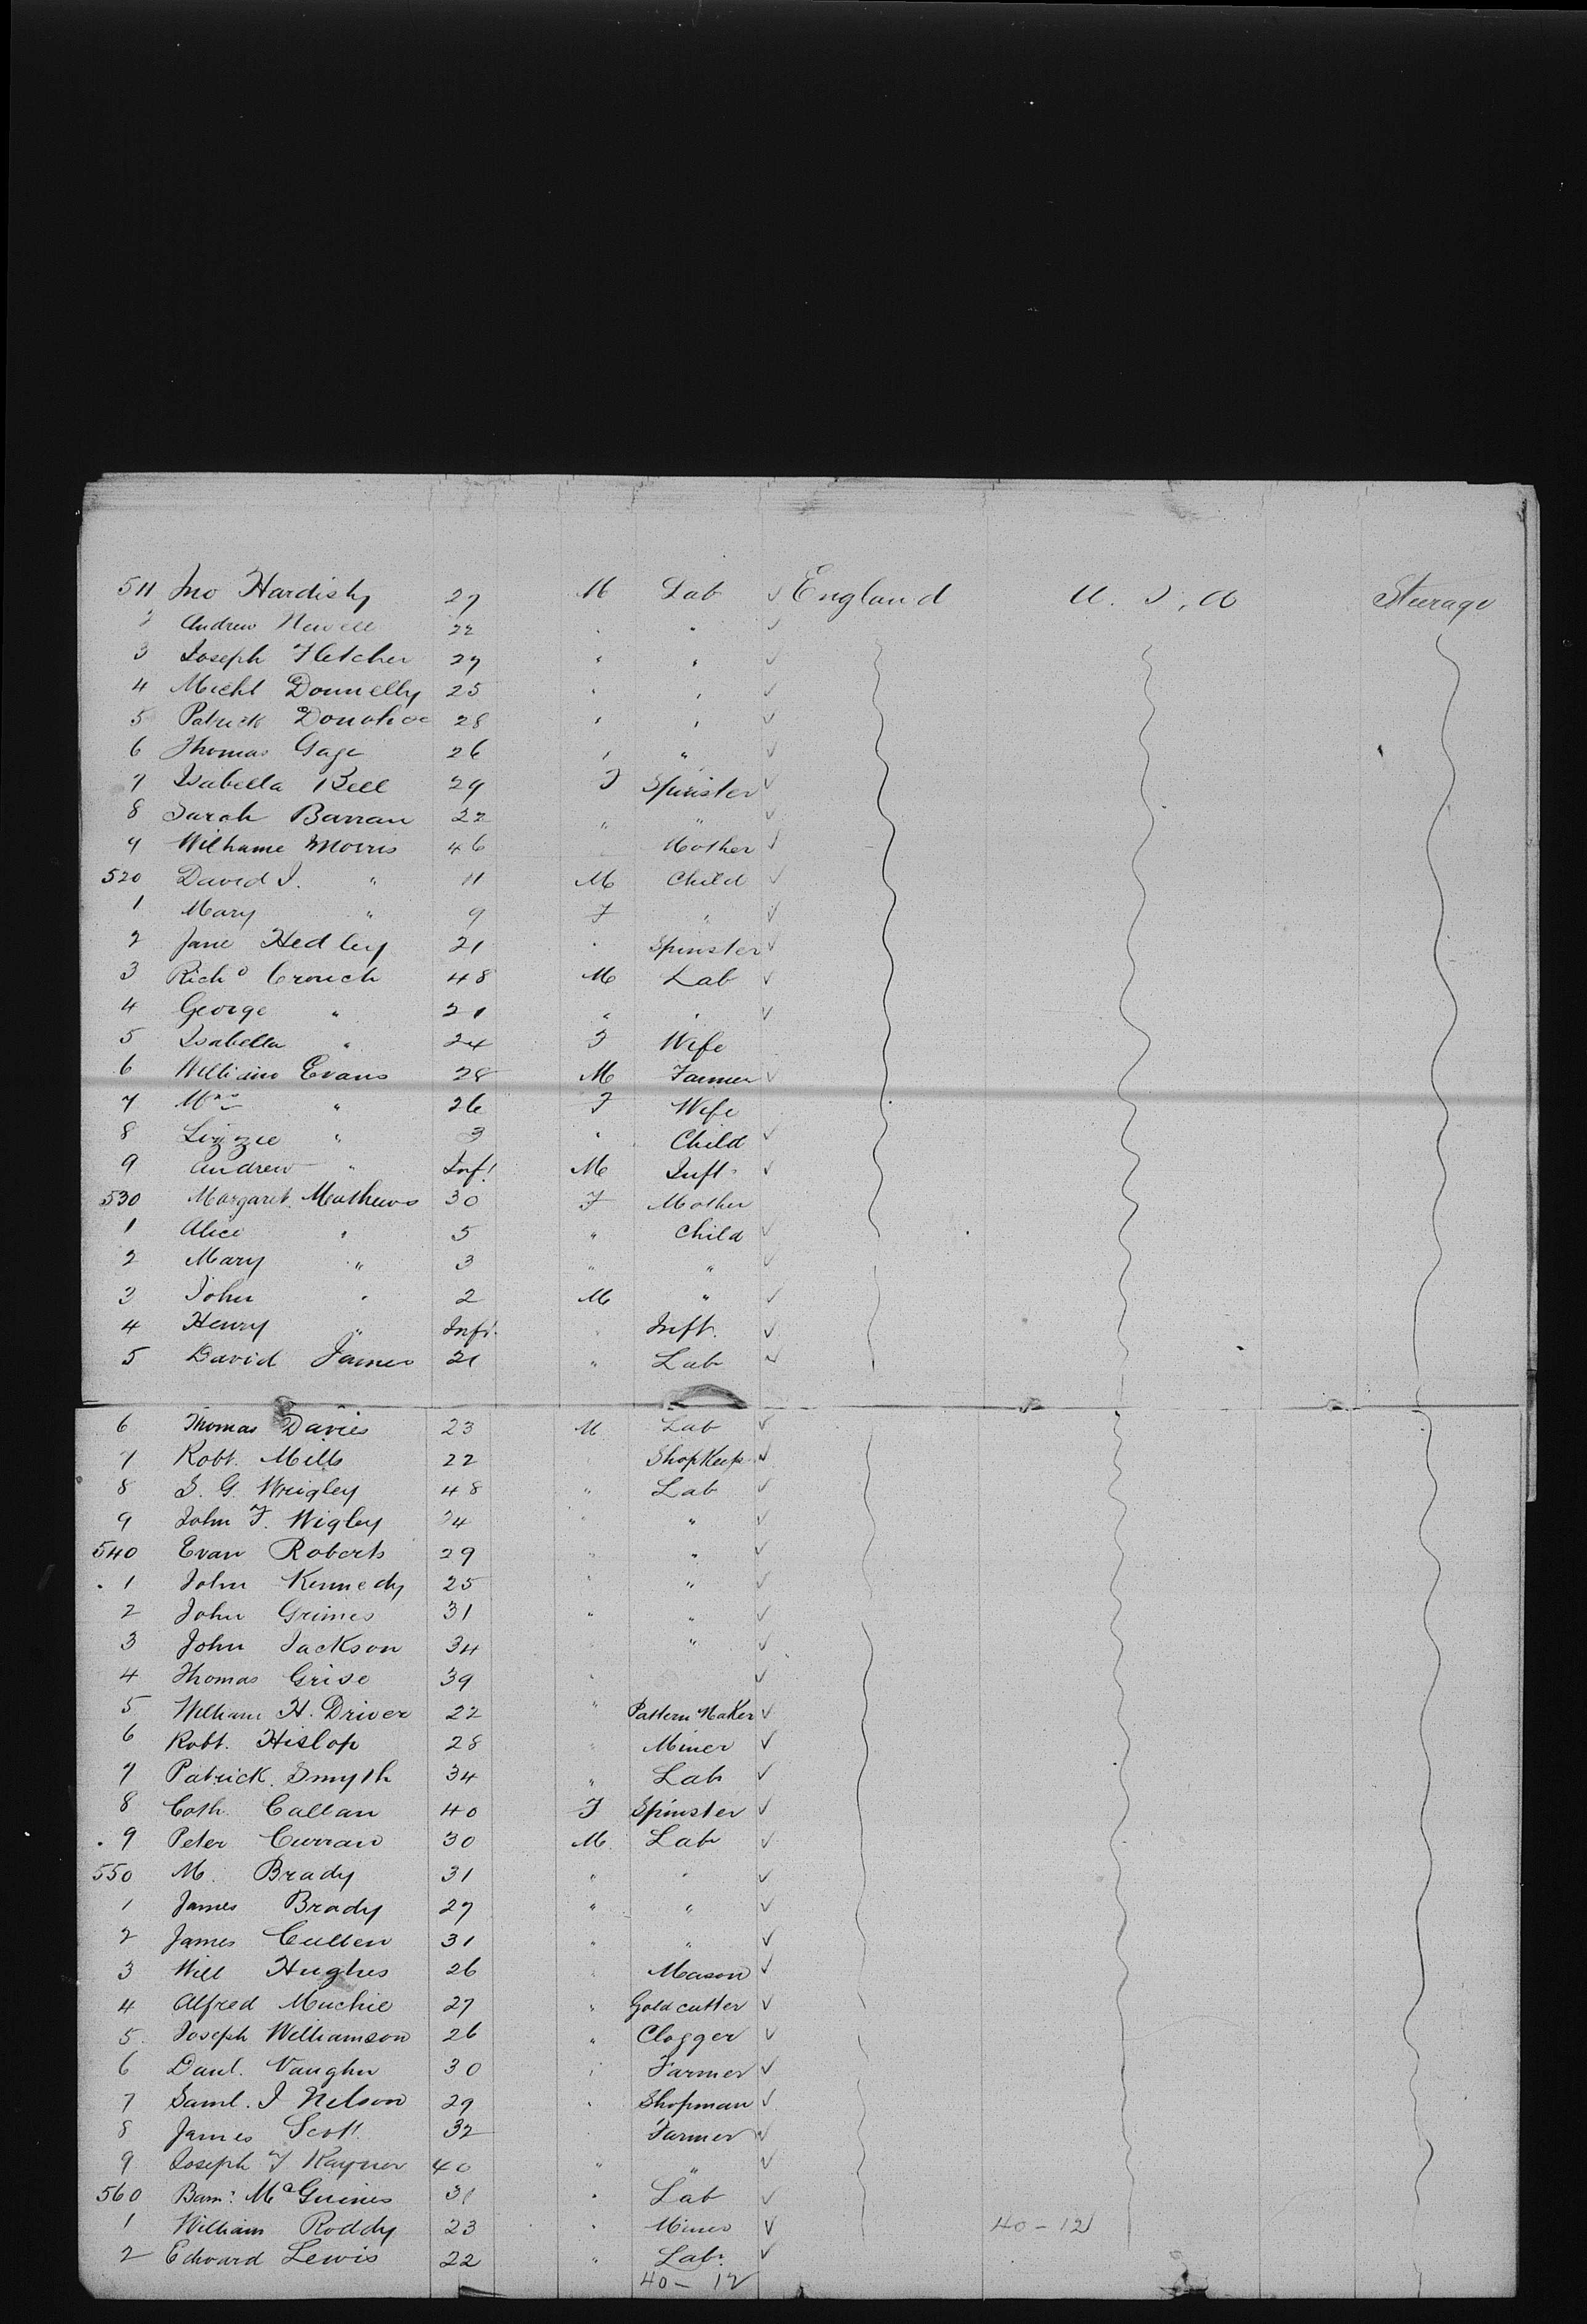 511 Jno Hardisty 27 M Lab ✓ England U. S. A Steerage
2 Andrew Newell 22 " " ✓
3 Joseph Fletcher 27 " " ✓
4 Michl Donnelly 25 " " ✓
5 Patrick Donohoe 28 " " ✓
6 Thomas Gage 26 " " ✓
7 Isabella Bell 29 F Spinster ✓
8 Sarah Barran 22 " " ✓
9 Morris 46 Mother ✓
520 David J. " 11 M Child ✓
1 Mary " 9 F " ✓
2 Jane Hedley 21 " Spinster ✓
3 Richd Crouch 48 M Lab ✓
4 George " 21 " " ✓
5 Isabella " 24 F Wife
6 William Evans 28 M Farmer ✓
7 Mrs " 26 F Wife
8 Lizzie " 3 " Child ✓
9 Andrew " Inft M Inft ✓
530 Margaret Mathews 30 F Mother
1 Alice " 5 " Child ✓
2 Mary " 3 " " ✓
3 John " 2 M " ✓
4 Henry " Inft. Inft. ✓
5 David James 21 " Lab ✓
6 Thomas Davies 23 M Lab ✓
7 Robt. Mills 22 ShopKeep ✓
8 S. G. Wrigley 48 " Lab ✓
9 John F. Wigley 24 " " ✓
540 Evan Roberts 29 " " ✓
1 John Kennedy 25 " " ✓
2 John Grimes 31 " " ✓
3 John Jackson 34 " ✓
4 Thomas Grise 39 " ✓
5 William H. Driver 22 " Pattern Maker ✓
6 Robt. Hislop 28 " Miner ✓
7 Patrick Smyth 34 " Lab ✓
8 Cath. Callan 40 F Spinster ✓
9 Peter Curran 30 M. Lab ✓
550 M. Brady 31 " " ✓
1 James Brady 27 " " ✓
2 James Cullen 31 " " ✓
3 Will Hughes 26 " Mason ✓
4 Alfred Muchie 27 " Gold cutter ✓
5 Joseph Williamson 26 " Clogger ✓
6 Danl. Vaughn 30 " Farmer ✓
7 Saml. J Nelson 29 " Shopman ✓
8 James Scott 32 Farmer ✓
9 Joseph F Rayner 40 " " ✓
560 McGuines 31 " Lab ✓
1 William Roddy 23 " Miner ✓ 40 - 12
2 Edward Lewis 22 " Lab. ✓
40 - 12